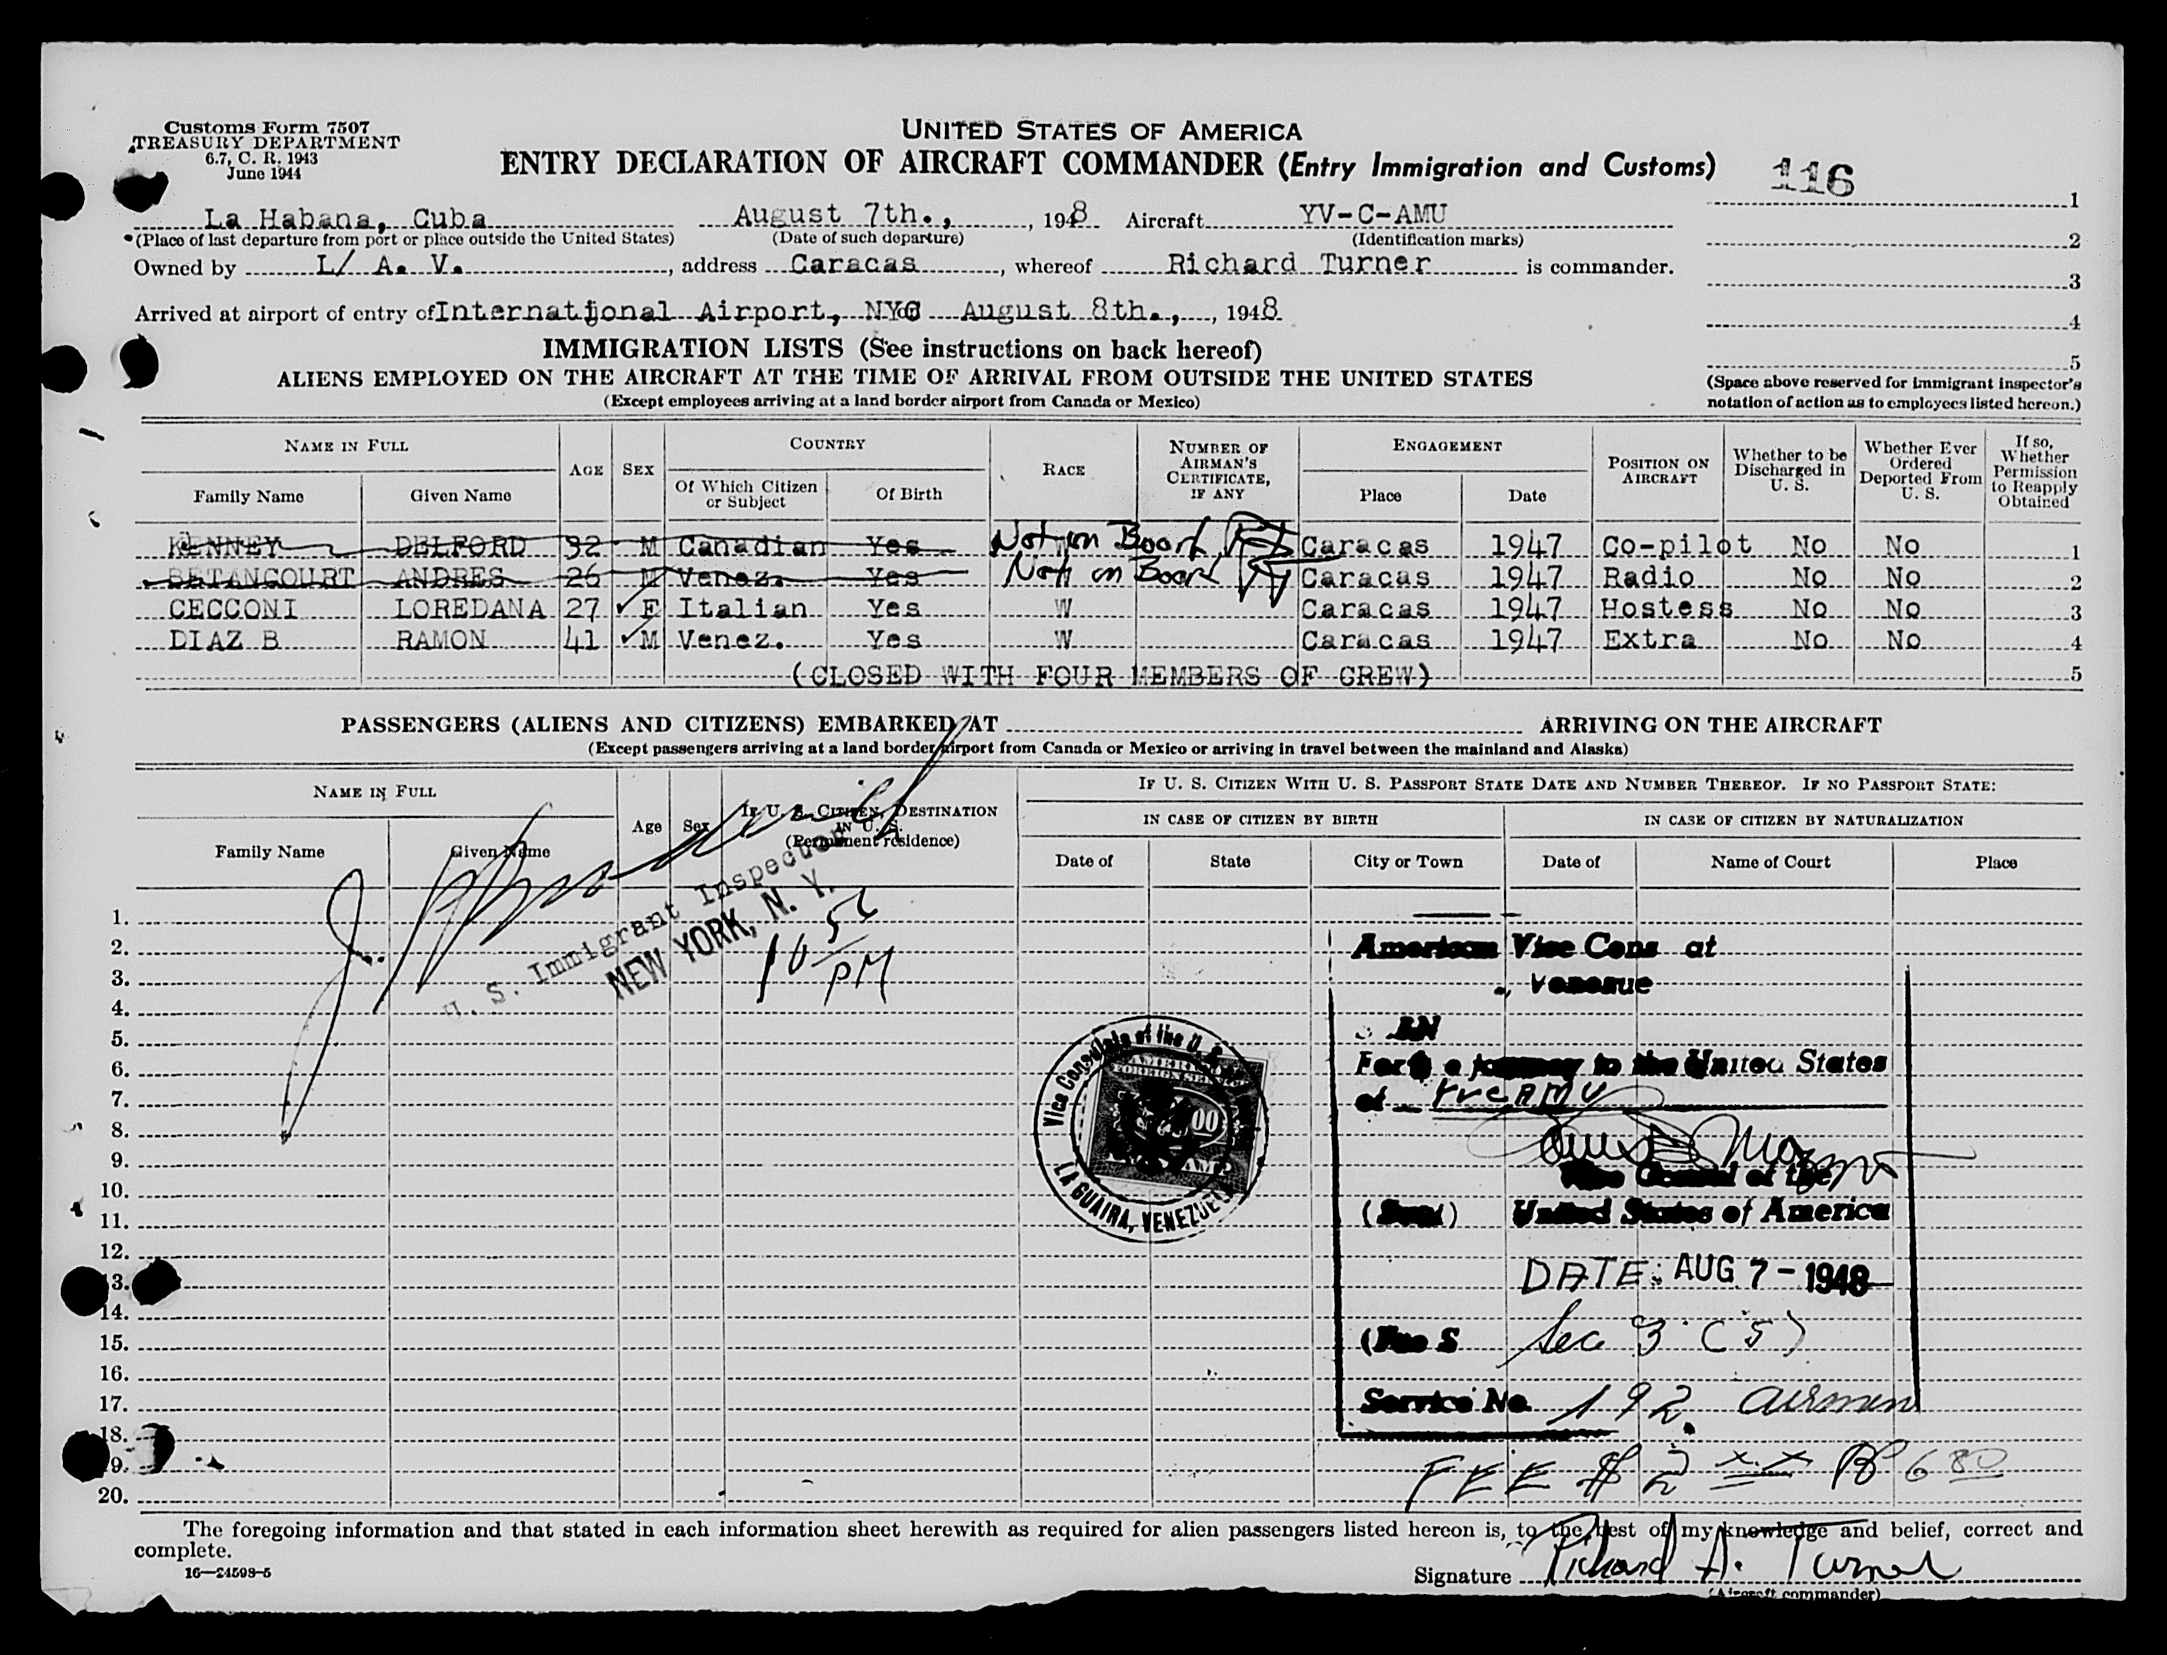 Customs Form 7507
TREASURY DEPARTMENT
6.7, C. R. 1943
June 1944
UNITED STATES OF AMERICA
ENTRY DECLARATION OF AIRCRAFT COMMANDER (Entry Immigration and Customs)
116
La Habana, Cuba August 7th., 1948 Aircraft YV-C-AMU
(Place of last departure from port or place outside the United States) (Date of such departure) (Identification marks)
Owned by L/ A. V. , address Caracas , whereof Richard Turner is commander.
Arrived at airport of entry of International Airport, NYC August 8th., , 1948
1
2
3
4
5
(Space above reserved for immigrant inspector's
notation of action as to employees listed hereon.)
IMMIGRATION LISTS (See instructions on back hereof)
ALIENS EMPLOYED ON THE AIRCRAFT AT THE TIME OF ARRIVAL FROM OUTSIDE THE UNITED STATES
(Except employees arriving at a land border airport from Canada or Mexico)
NAME IN FULL
Family Name Given Name
AGE SEX
COUNTRY
Of Which Citizen or Subject Of Birth
RACE
NUMBER OF AIRMAN'S CERTIFICATE, IF ANY
ENGAGEMENT
Place Date
POSITION ON AIRCRAFT
Whether to be Discharged in U. S.
Whether Ever Ordered Deported From U. S.
If so, Whether Permission to Reapply Obtained
KENNEY DELFORD 32 M Canadian Yes Not on Board Caracas 1947 Co-pilot No No 1
BETANCOURT ANDRES 26 M Venez. Yes Not on Board Caracas 1947 Radio No No 2
CECCONI LOREDANA 27 F Italian Yes W Caracas 1947 Hostess No No 3
DIAZ B RAMON 41 M Venez. Yes W Caracas 1947 Extra No No 4
(CLOSED WITH FOUR MEMBERS OF CREW) 5
PASSENGERS (ALIENS AND CITIZENS) EMBARKED AT ARRIVING ON THE AIRCRAFT
(Except passengers arriving at a land border airport from Canada or Mexico or arriving in travel between the mainland and Alaska)
NAME IN FULL
Family Name Given Name
Age Sex
IF U. S. CITIZEN, DESTINATION IN U. S.
(Permanent residence)
IF U. S. CITIZEN WITH U. S. PASSPORT STATE DATE AND NUMBER THEREOF. IF NO PASSPORT STATE:
IN CASE OF CITIZEN BY BIRTH IN CASE OF CITIZEN BY NATURALIZATION
Date of State City or Town Date of Name of Court Place
U. S. Immigrant Inspector
NEW YORK, N. Y.
PM
1.
2.
3.
4.
5.
6.
7.
8.
9.
10.
11.
12.
13.
14.
15.
16.
17.
18.
19.
20.
American Vice Cons at
For a journey to the United States
Vice Consul of the
(Seal) United States of America
DATE: AUG 7 - 1948
Sec 3 (5)
Service No. 192. airmen
FEE $ 2 xx
Vice Consulate of the U. S.
AMERICAN
FOREIGN SERVICE
LA GUAIRA, VENEZUELA
The foregoing information and that stated in each information sheet herewith as required for alien passengers listed hereon is, to the best of my knowledge and belief, correct and
complete.
16—24598-5
Signature Richard A. Turner
(Aircraft commander)